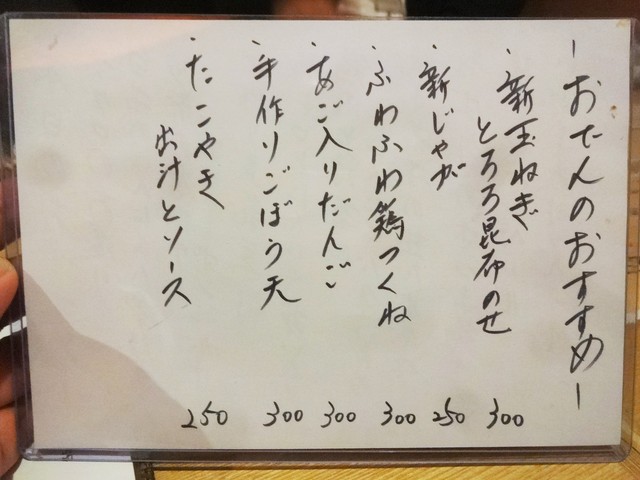 -おでんのおすすめ-
・新玉ねぎ
とろろ昆布のせ 300
・新じゃが 250
・ふわふわ鶏つくね 300
・あご入りだんご 300
・手作りごぼう天 300
・たこやき
出汁とソース 250